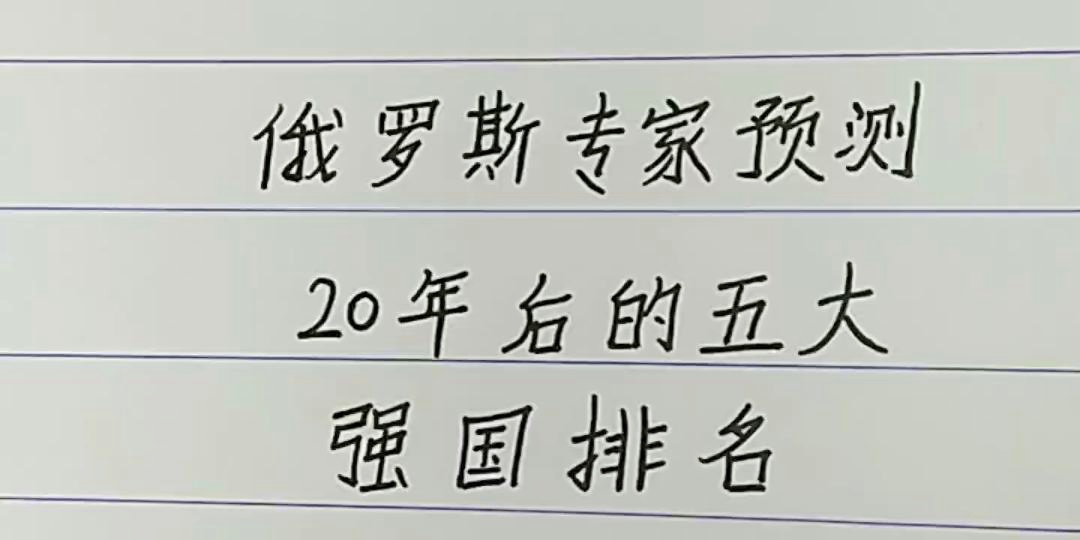 俄罗斯专家预测
20年后的五大
强国排名